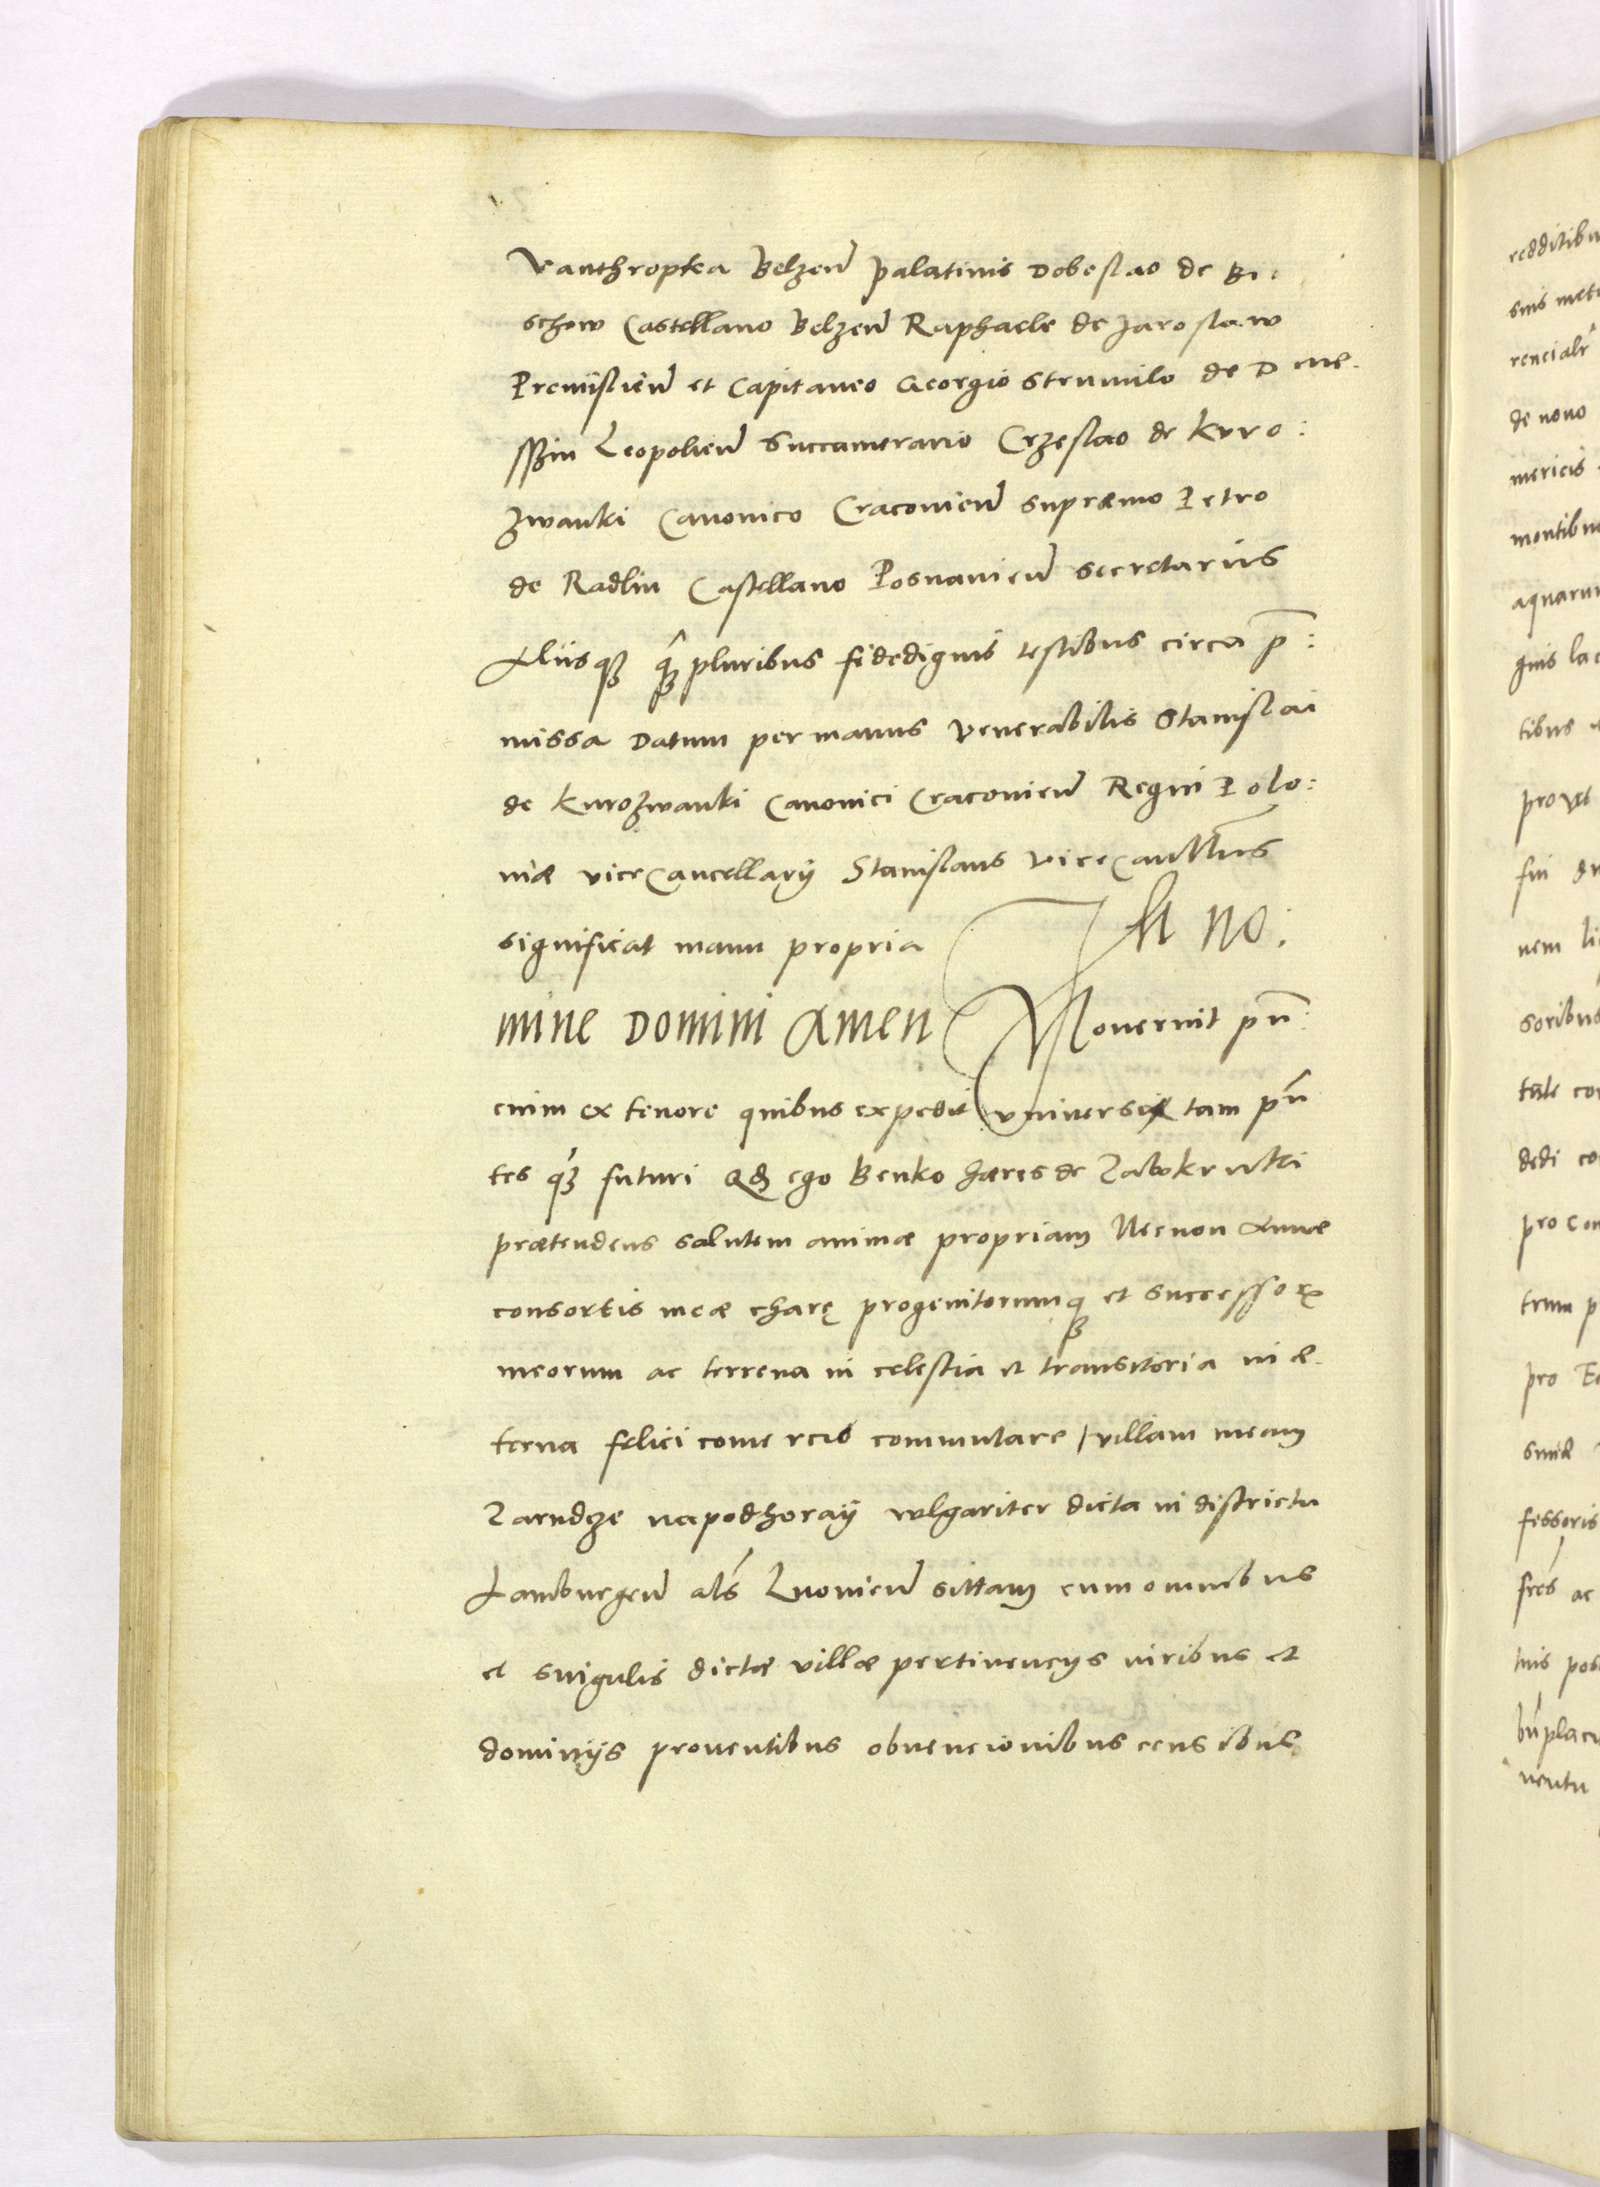 Vanthropka Belzen̄ Palatinis Dobeslao de Bi:
schow Castellano Belzen̄ Raphaele de Jaroslaw
Premislien̄ et Capitaneo Georgio Strumilo de Dme.
sszin Leopolien̄ Succamerario Crzeslao de Kuro:
zwanki Canonico Cracovien̄ supræmo Petro
de Radlin Castellano Posnanien̄ secretariis
Aliisqꝫ qꝫ̃ pluribus fidedignis testibus circa p̄:
missa Datum per manus Venerabilis Stanislai
de Kurozwanki Canonici Cracovien̄ Regni Polo:
niæ viceCancellarij Stanislaus viceCancll̄rius
significat manu propria In no:
mine Domini Amen Noverint pn̄:
cium ex tenore quibus expedit universi tam pn̄
tes qꝫ̃ futuri Qđ ego Benko hæres de Zabokruki
prætendens salutem animæ propriam Necnon Annæ
consortis meæ charę progenitorumqꝫ et successoꝝ
meorum ac terrena in celestia et transitoria in æ.
terna felici comercio commutare / villam meam
Zarudcze napodhoraÿ vulgariter dicta in districtu
Lamburgen̄ als̄ Lvovien̄ sittam cum omnibus
et singulis dictæ villæ pertinencijs iuribus et
dominijs proventibus obvencionibus censibus
redditibu
suis met
de novo
mericis
montibu
aquarum
tibus
nem li
soribus
dedi co
pro con
pro
fessoris
ac